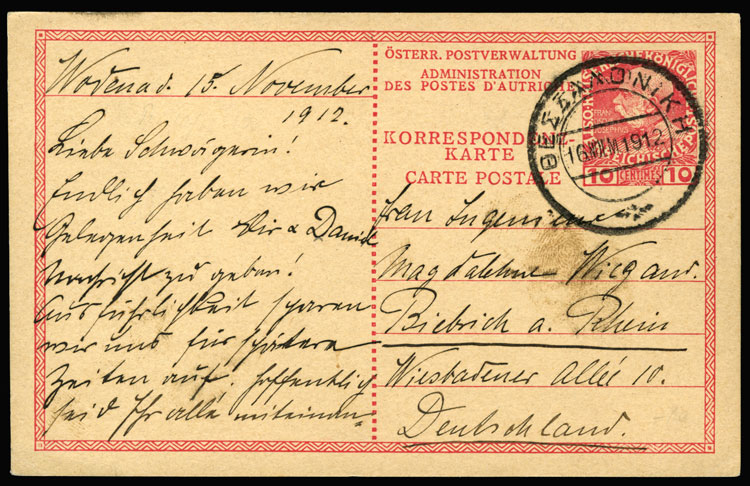 Wodena d. 15. November
1912.
Liebe Schwägerin!
Endlich haben wir
Gelegenheit Dir & Daniel
Nachricht zu geben!
Ausführlichkeit sparen
wir uns für spätere
Zeiten auf. Hoffentlich
seid Ihr alle miteinan-
ÖSTERR. POSTVERWALTUNG
ADMINISTRATION
DES POSTES D'AUTRICHE
KORRESPONDENZ-
KARTE
CARTE POSTALE
ΘΕΣΣΑΛΟΝΙΚΗ
1912
10 CENTIMES 10
Frau Ingenieur
Magdalehne Wiegand.
Biebrich a. Rhein
Wiesbadener Allée 10.
Deutschland.